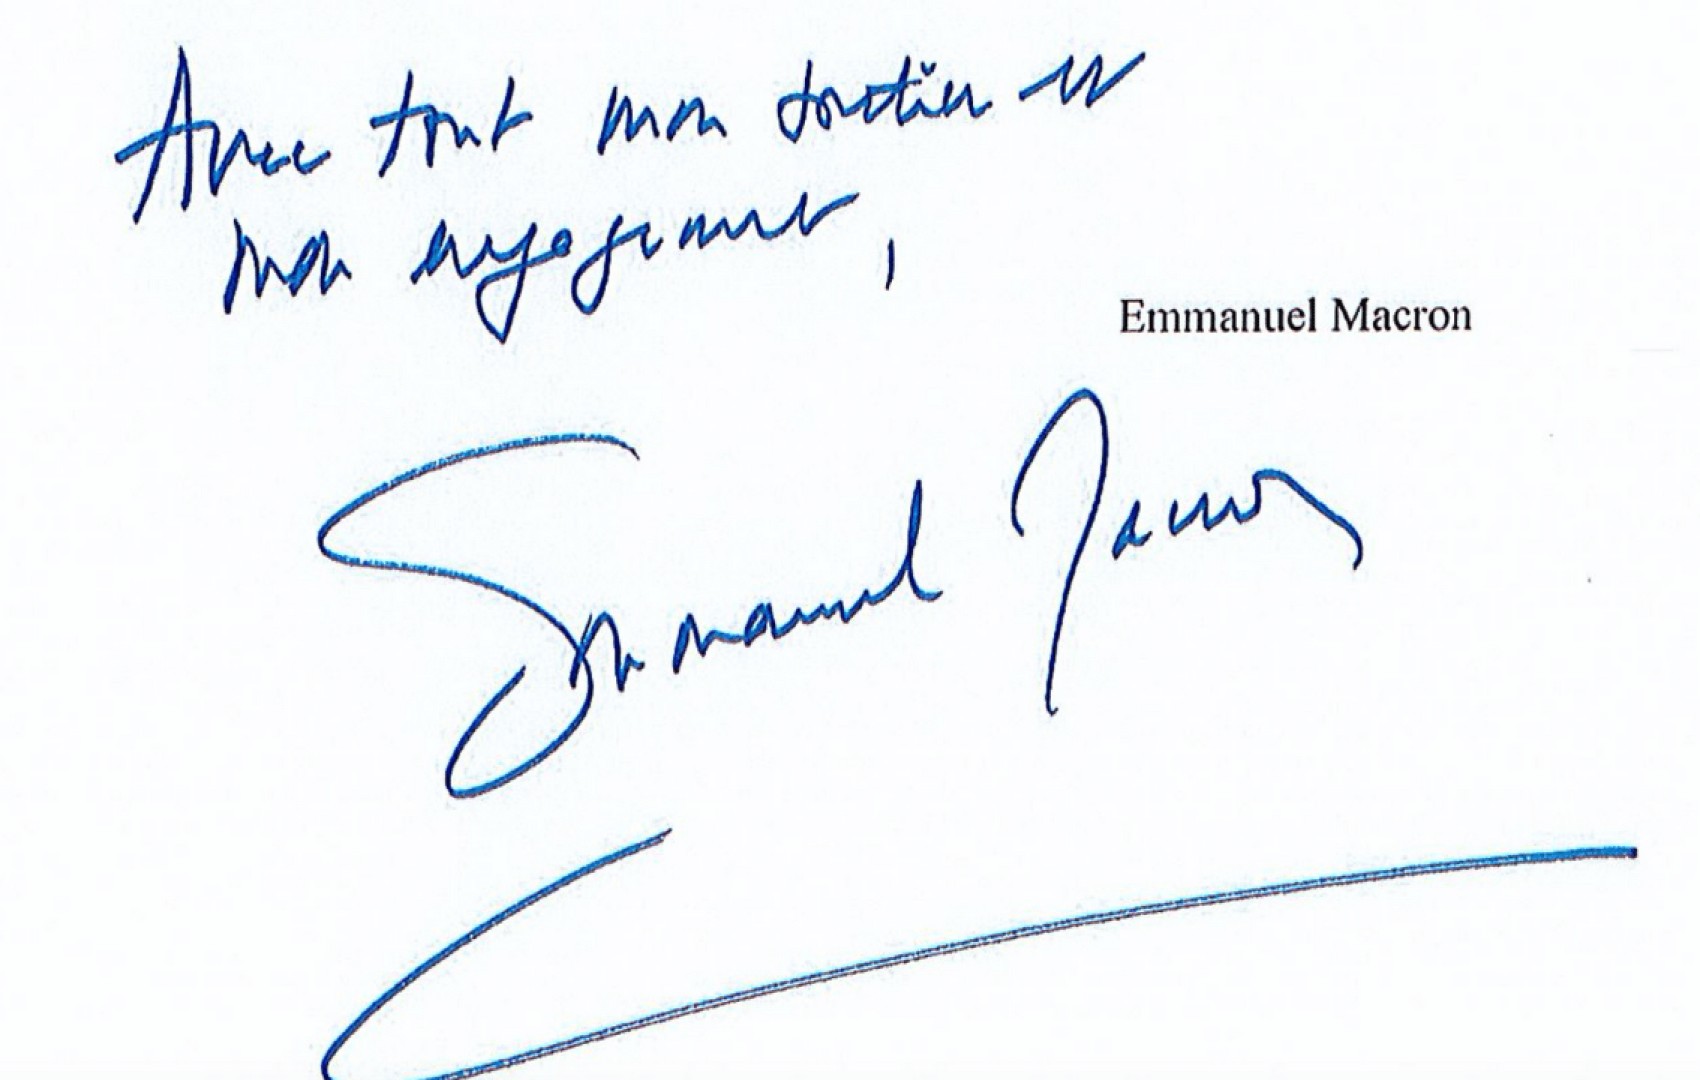 Avec tout mon soutien et
mon engagement,
Emmanuel Macron
Emmanuel Macron